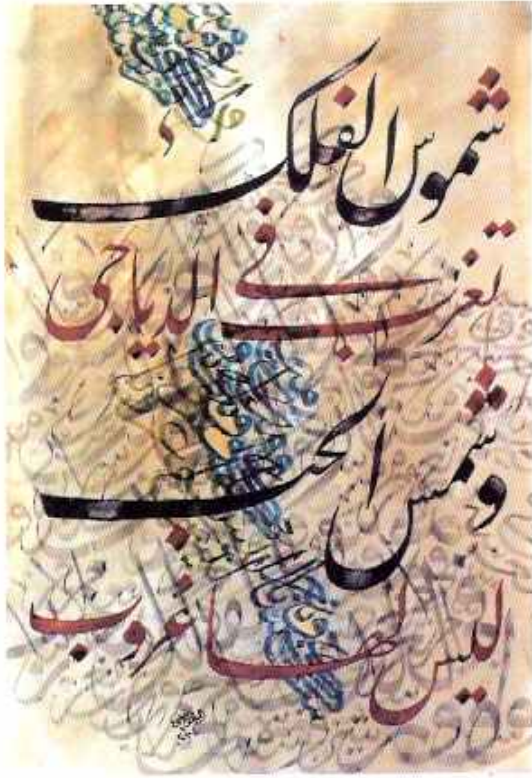 شموس الفلك
تغرب في الدياجي
وشمس الحب
ليس لها غروب